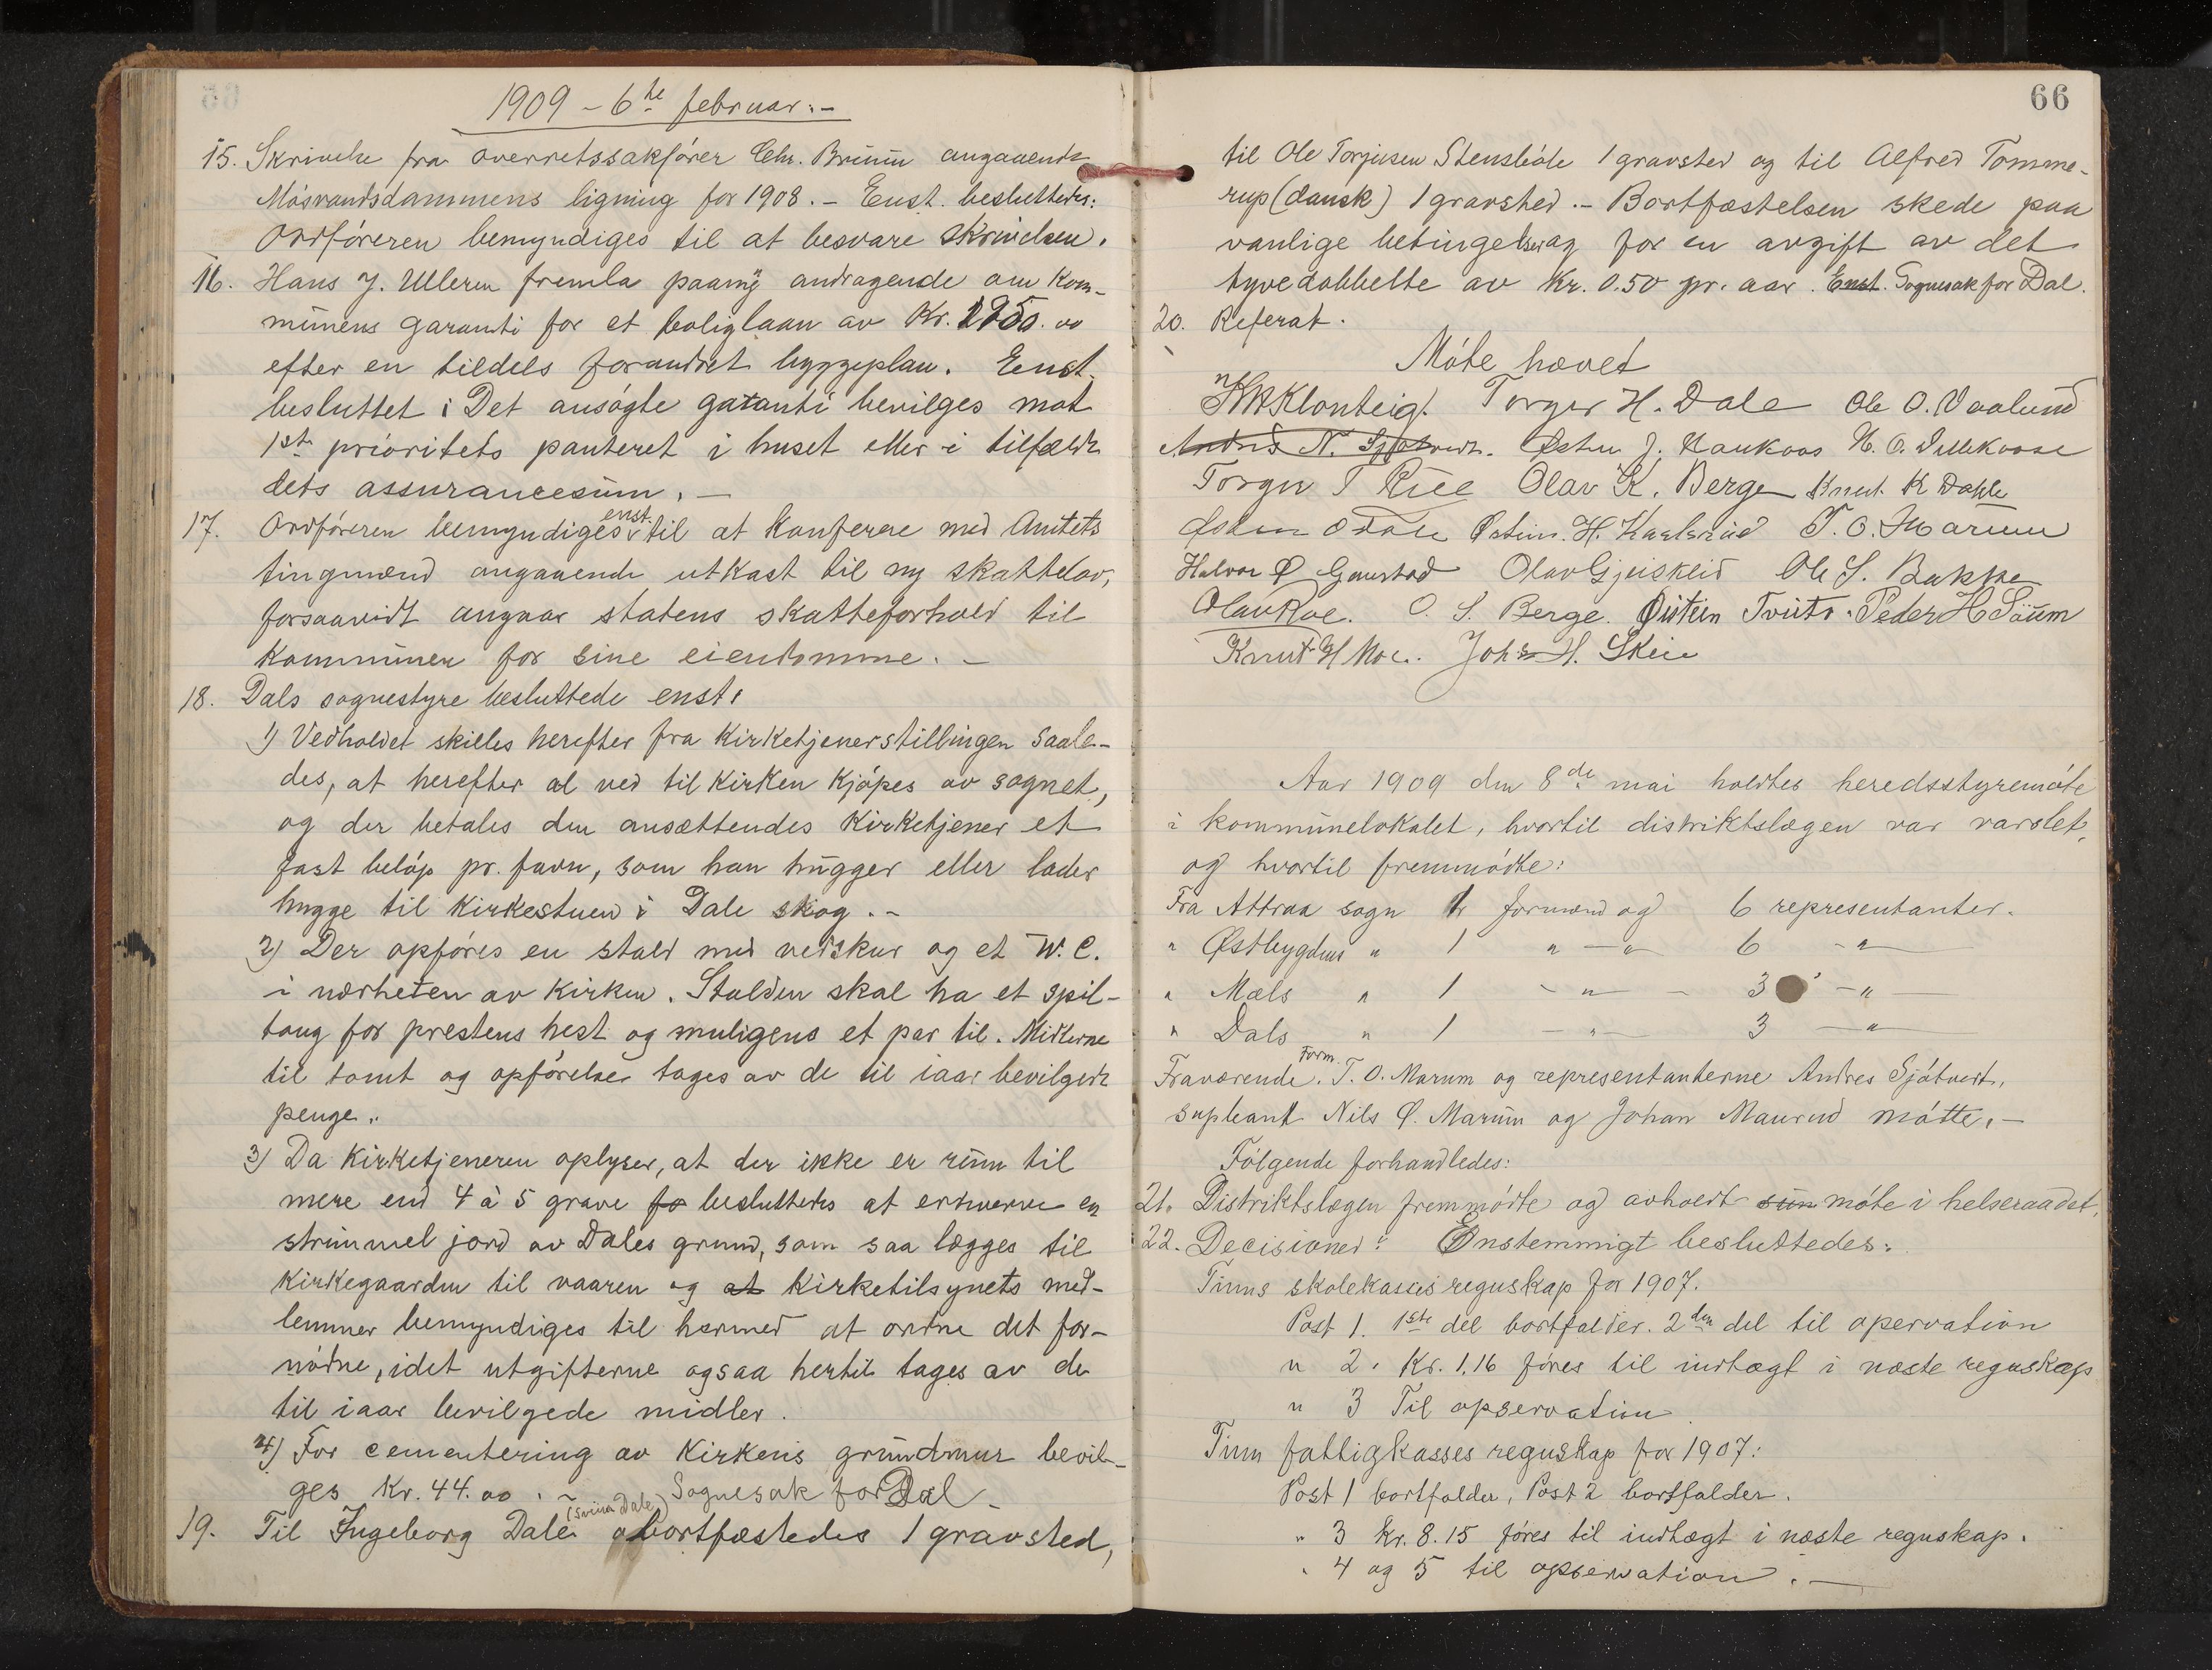 1909 - 6te februar.-
15. Skrivelse fra overretssakfører Chr. Bruun angaaende
Møsvandsdammens ligning for 1908. - Enst. besluttedes:
Ordføreren bemyndiges til at besvare skrivelsen.
16. Hans J. Ulleren fremla paany andragende om kom-
munens garanti for et boliglaan av Kr. 1950.00
efter en tildels forandret byggeplan. Enst.
besluttet: Det ansøgte garanti bevilges mot
1ste prioritets panteret i huset eller i tilfælde
dets assurancesum. -
17. Ordføreren bemyndiges enst. til at konferere med Amtets
tingmænd angaaende utkast til ny skattelov,
forsaavidt angaar statens skatteforhold til
kommunen for sine eiendomme. -
18. Dals sognestyre besluttede enst:
1) Vedholdet skilles herefter fra kirketjenerstillingen saale-
des, at herefter al ved til kirken kjøpes av sognet,
og der betales den ansættendes kirketjener et
fast beløp pr. favn, som han hugger eller lader
hugge til kirkestuen i Dale skog. -
2) Der opføres en stald med vedskur og et W.C.
i nærheten av kirken. Stalden skal ha et spil-
taug for prestens hest og muligens et par til. Midlerne
til tomt og opførelse tages av de til iaar bevilgede
penge.
3) Da kirketjeneren oplyser, at der ikke er rum til
mere end 4 à 5 grave fo besluttedes at erhverve en
strimmel jord av Dales grund, som saa lægges til
kirkegaarden til vaaren og at kirketilsynets med-
lemmer bemyndiges til hermed at ordne det for-
nødne, idet utgifterne ogsaa hertil tages av de
til iaar bevilgede midler.
4) For cementering av kirkens grundmur bevil-
ges Kr. 44.00. - Sognesak for Dal -
19. Til Ingeborg Dale (Sveina Dale) bortfæstedes 1 gravsted,
66
til Ole Torjusen Stensbøle 1 gravsted og til Alfred Tomme-
rup (dansk) 1 gravsted. - Bortfæstelsen skede paa
vanlige betingelser og for en avgift av det
tyvedobbelte av Kr. 0.50 pr. aar. Enst. Sognesak for Dal.
20. Referat.
Møte hævet
Klonteig. Torger H. Dale Ole O. Vaalund
Andres N. Sjøtvedt. Østen J. Haukaas H. O.
Torger T Rue Olav K. Berge Knut K Dahle
Østen O Dale Østein H. Kaalsrud T. O. Marum
Halvor Ø Gaustad Olav Gjuskeid Ole S. Bakke
Olav Roe. O. S. Berge. Øistein Tveito. Peder H Saum
Knut H Moe. Johs H. Skeie
Aar 1909 den 8de mai holdtes heredsstyremøte
i kommunelokalet, hvortil distriktslægen var varslet,
og hvortil fremmødte:
Fra Attraa sogn 1 formænd og 6 representanter.
" Østbygdens " 1 " - " 6 - "
" Mæls " 1 - " - 3 - "
" Dals " 1 - " - 3 - "
Fraværende. Form. T. O. Marum og representanterne Andres Sjøtvedt,
supleant Nils Ø. Marum og Johan Maurud møtte. -
Følgende forhandledes:
21. Distriktslægen fremmødte og avholdt sin møte i helseraadet.
22. Decisioner: Enstemmigt besluttedes:
Tinns skolekasses regnskap for 1907.
Post 1. 1ste del bortfalder. 2den del til opservation
" 2. Kr. 1.16 føres til indtægt i næste regnskap
" 3 Til opservation
Tinn fattigkasses regnskap for 1907:
Post 1 bortfalder, Post 2 bortfalder.
" 3 Kr. 8.15 føres til indtægt i næste regnskap.
" 4 og 5 til opservation. -